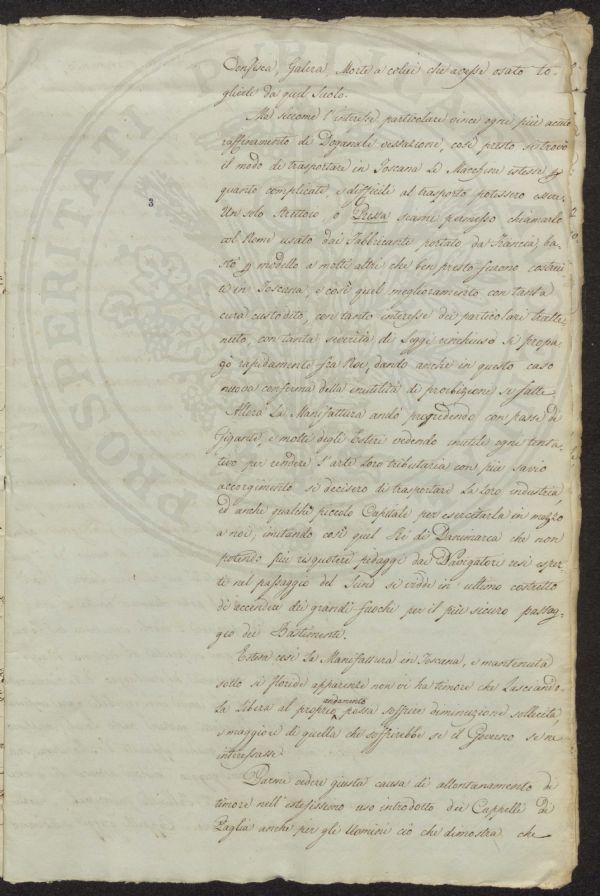 Confisca, Galera, Morte a colui che avesse osato to-
glierle da quel Suolo.
Ma siccome l'interesse particolare vince ogni più acuto
raffinamento di Doganale vessazione, così presto si trovò
il modo di trasportare in Toscana Le Macchine istesse p
quanto complicate, e difficili al trasporto potessero essere.
Un solo Strettoio, o Pressa siami permesso chiamarlo
col Nome usato dai Fabbricanti portato da Francia, ba-
stò p modello a molti altri che ben presto furono costrui-
ti in Toscana, e così quel miglioramento con tanta
cura custodito, con tanto interesse dei particolari tratte-
nuto, con tanta severità di Leggi rinchiuso si propa-
gò rapidamente fra Noi, dando anche in questo caso
nuova conferma della inutilità di proibizioni sì fatte
Allora La Manifattura andò progredendo con passi di
Gigante, e molti degli Esteri vedendo inutile ogni tenta-
tivo per rendere l'arte Loro tributaria con più savio
accorgimento si decisero di trasportare La Loro industria
ed anche qualche piccolo Capitale per esercitarla in mezzo
a noi, imitando così quel Re di Danimarca che non
potendo più risquotere pedaggi dai Navigatori resi esper-
ti nel passaggio del Sund si vidde in ultimo costretto
di accendere dei grandi fuochi per il più sicuro passag-
gio dei Bastimenti.
Estesa così La Manifattura in Toscana, e mantenuta
sotto sì floride apparenze non vi ha timore che Lasciando-
la libera al proprio andamento possa soffrire diminuzione sollecita,
e maggiore di quella che soffrirebbe se il Governo se ne
interessasse.
Parmi vedere giusta causa di allontanamento di
timore nell'estesissimo uso introdotto dei Cappelli Di
Paglia anche per gli Uomini ciò che dimostra che
3
PROSPERITATI PUBLICAE